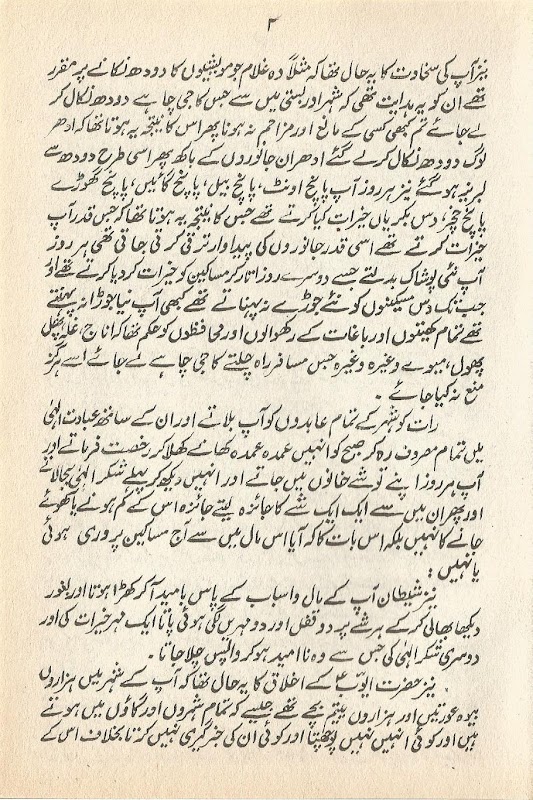 ۳
نیز آپ کی سخاوت کا یہ حال تھا کہ مثلاً وہ غلام جو مویشیوں کا دودھ نکالنے پر مقرر
تھے ان کو یہ ہدایت تھی کہ شہر اور بستی میں سے جس کا جی چاہے دودھ نکال کر
لے جائے تم کبھی کسی کے مانع اور مزاحم نہ ہونا پھر اس کا نتیجہ یہ ہوتا تھا کہ ادھر
لوگ دودھ نکال کر لے گئے ادھر ان جانوروں کے باکھ پھر اسی طرح دودھ سے
لبریز ہو گئے نیز ہر روز آپ پانچ اونٹ، پانچ بیل، پانچ گائیں، پانچ گھوڑے
پانچ خچر، دس بکریاں خیرات کیا کرتے تھے جس کا نتیجہ یہ ہوتا تھا کہ جس قدر آپ
خیرات کرتے تھے اسی قدر جانوروں کی پیداوار ترقی کرتی جاتی تھی ہر روز
آپ نئی پوشاک بدلتے جسے دوسرے روز اتار کر مساکین کو خیرات کر دیا کرتے تھے اور
جب تک دس مسکینوں کو نئے جوڑے نہ پہناتے تھے کبھی آپ نیا جوڑا نہ پہنتے
تھے تمام کھیتوں اور باغات کے رکھوالوں اور محافظوں کو حکم تھا کہ اناج، غلہ، پھل
پھول، میوے وغیرہ وغیرہ جس مسافر راہ چلتے کا جی چاہے لے جائے اسے ہرگز
منع نہ کیا جائے ۔
رات کو شہر کے تمام عابدوں کو آپ بلاتے اور ان کے ساتھ عبادت الٰہی
میں تمام مصروف رہ کر صبح کو انہیں عمدہ عمدہ کھانے کھلا کر رخصت فرماتے اور
آپ ہر روز اپنے توشے خانوں میں جاتے اور انہیں دیکھ کر پہلے شکر الٰہی بجا لاتے
اور پھر ان میں سے ایک ایک شے کا جائزہ لیتے جائزہ اس کے کم ہونے یا کھوئے
جانے کا نہیں بلکہ اس بات کا کہ آیا اس مال میں سے آج مساکین پروری ہوئی
یا نہیں :
نیز شیطان آپ کے مال و اسباب کے پاس با مید آ کر کھڑا ہوتا اور بغور
دیکھا بھالی کر کے ہر شے پر دو قفل اور دو مہریں لگی ہوئی پاتا ایک مہر خیرات کی اور
دوسری شکر الٰہی کی جس سے وہ نا امید ہو کر واپس چلا جاتا ۔
نیز حضرت ایوبؑ کے اخلاق کا یہ حال تھا کہ آپ کے شہر میں ہزاروں
بیوہ عورتیں اور ہزاروں یتیم بچے تھے جیسے کہ تمام شہروں اور گاؤں میں ہوتے
ہیں اور کوئی انہیں نہیں پوچھتا اور کوئی ان کی خبر گیری نہیں کرتا بخلاف اس کے